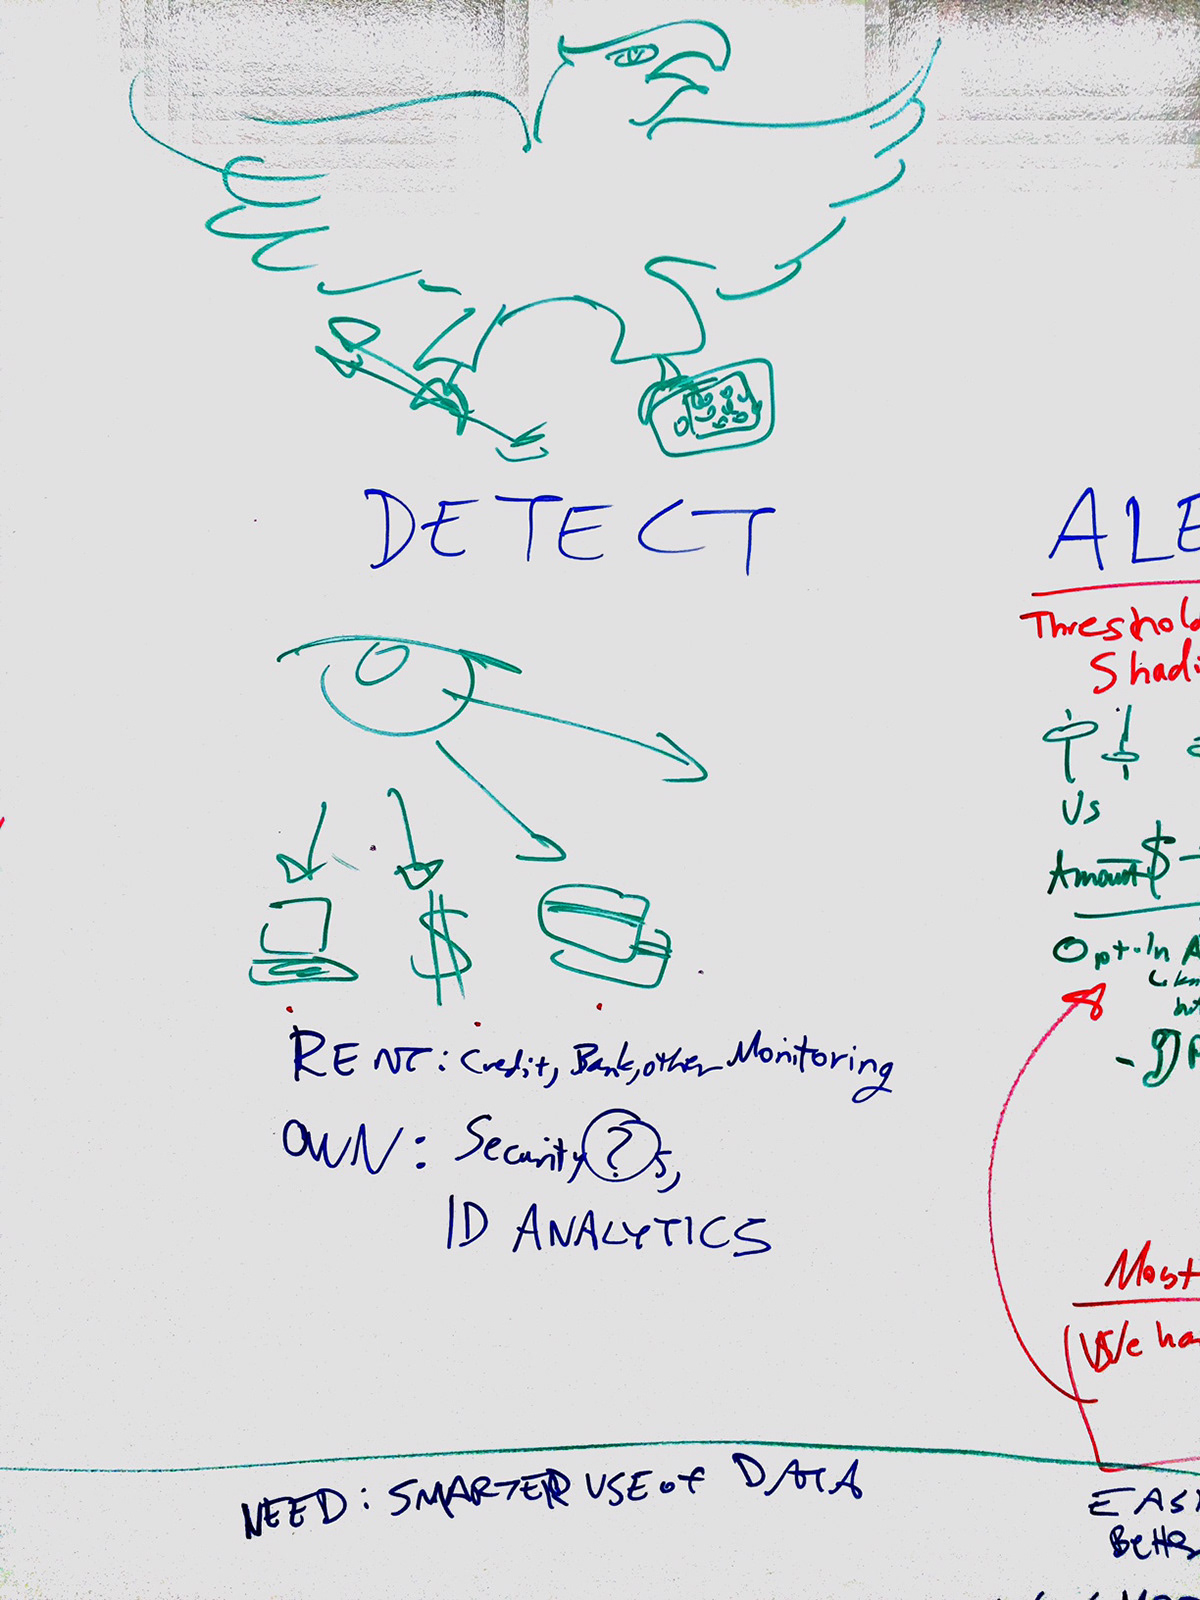 DETECT
$
RENT: Credit, Bank, other Monitoring
OWN: Security ?s,
ID ANALYTICS
NEED: SMARTER USE of DATA
ALE
Threshold
Shadi
Vs
Amount $
Opt-In A
Most
We ha
EAS
Better